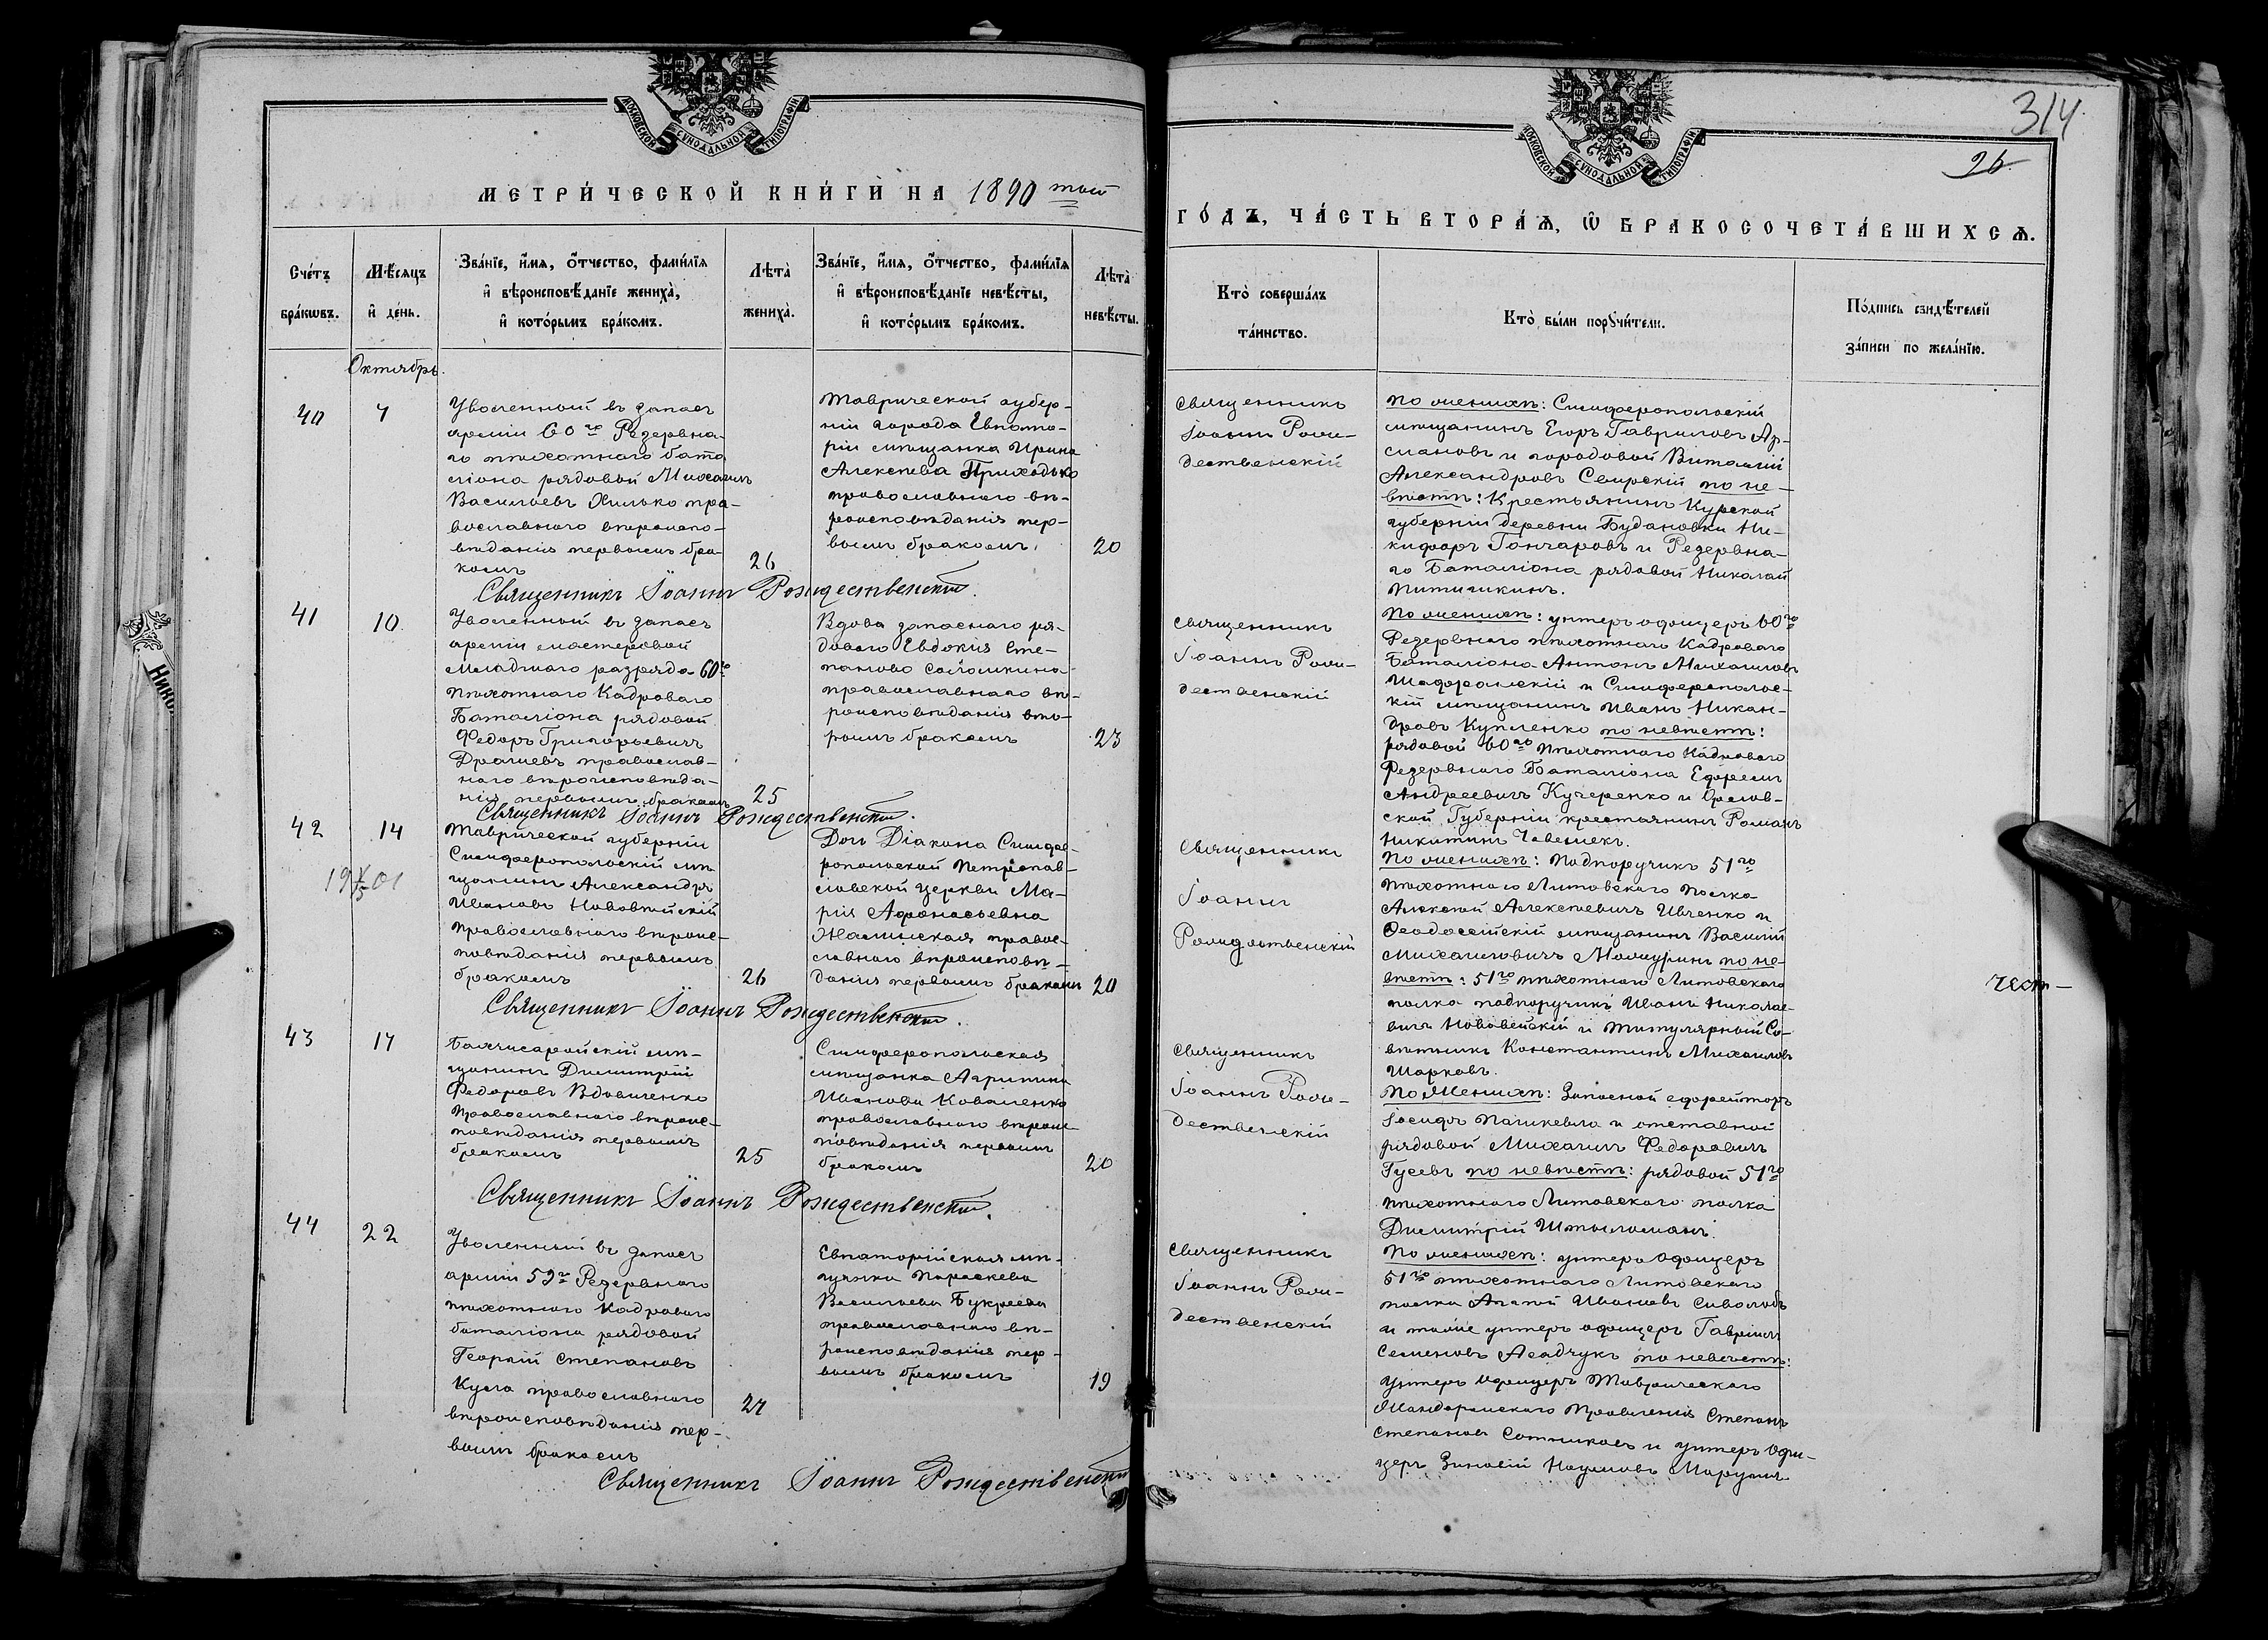 МОСКОВСКОЙ СУНОДАЛЬНОЙ ТИПОГРАФІИ
МЕТРИ́ЧЕСКОЙ КНИ́ГИ НА 1890 таго
Сче́тъ бра́кωвъ.
Мѣ́сяцъ и҆ де́нь.
Зва́нїе, и҆́мѧ, ѻ҆́тчество, фами́лїѧ
и҆ вѣроисповѣ́данїе жениха̀,
и҆ кото́рымъ бра́комъ.
Лѣта̀ жениха̀.
Зва́нїе, и҆́мѧ, ѻ҆́тчество, фами́лїѧ
и҆ вѣроисповѣ́данїе невѣ́сты,
и҆ кото́рымъ бра́комъ.
Лѣта̀ невѣ́сты.
Октябрь.
40
7
Уволенный въ запасъ
арміи 60го Резервна-
го пѣхотнаго бата
ліона рядовой Михаилъ
Васильевъ Хилько пра-
вославнаго вѣроиспо-
вѣданія первымъ бра-
комъ
26
Таврической губер-
ніи города Евпато-
ріи мѣщанка Ирина
Алексѣева Приходько
православнаго вѣ-
роисповѣданія пер-
вымъ бракомъ.
20
Священникъ Іоаннъ Рождественскій.
41
10
Уволенный въ запасъ
арміи мастеровой
младшаго разряда 60го
пѣхотнаго Кадроваго
Баталіона рядовой
Федоръ Григорьевичъ
православ-
наго вѣроисповѣда-
нія первымъ бракомъ
25
Вдова запаснаго ря-
доваго Евдокія Сте-
панова
православнаго вѣ-
роисповѣданія вто-
рымъ бракомъ
23
Священникъ Іоаннъ Рождественскій.
42
14
19 01
Таврической губерніи
Симферопольскій мѣ-
щанинъ Александръ
Ивановъ Нововейскій
православнаго вѣроис-
повѣданія первымъ
бракомъ
26
Дочь Діакона Симфе-
ропольской Петропав-
ловской церкви Ма-
рія Афонасьевна
правос-
лавнаго вѣроисповѣ-
данія первымъ бракомъ
20
Священникъ Іоаннъ Рождественскій.
43
17
Бахчисарайскій мѣ-
щанинъ Димитрій
Федоровъ Вдовиченко
православнаго вѣроис-
повѣданія первымъ
бракомъ
25
Симферопольская
мѣщанка Агрипина
Иванова Коваленко
православнаго вѣроис-
повѣданія первымъ
бракомъ
20
Священникъ Іоаннъ Рождественскій.
44
22
Уволенный въ запасъ
арміи 59го Резервнаго
пѣхотнаго Кадроваго
баталіона рядовой
Георгій Степановъ
православнаго
вѣроисповѣданія пер-
вымъ бракомъ
27
Евпаторійская мѣ-
щанка Параскева
Васильева Букреева
православнаго вѣ-
роисповѣданія пер-
вымъ бракомъ
19
Священникъ Іоаннъ Рождественскій
МОСКОВСКОЙ СУНОДАЛЬНОЙ ТИПОГРАФІИ
314
26
ГО́ДЪ, ЧА́СТЬ ВТОРА́Ѧ, Ѽ БРАКОСОЧЕТА́ВШИХСѦ.
Кто̀ соверша́лъ та́инство.
Кто̀ бы́ли порꙋчи́тели.
По́дпись свидѣ́телей
за́писи по жела́нїю.
Священникъ
Іоаннъ Рож-
дественскій
По женихѣ: Симферопольскій
мѣщанинъ Егоръ Гавриловъ Ар-
слановъ и городовой Виталій
Александровъ Свирскій по не-
вѣстѣ: Крестьянинъ Курской
губерніи деревни Будановки Ни-
кифоръ Гончаровъ и Резервна-
го Баталіона рядовой Николай
Питишкинъ.
Священникъ
Іоаннъ Рож-
дественскій
По женихѣ: унтеръ офицеръ 60го
Резервнаго пѣхотнаго Кадроваго
Баталіона Антонъ Михаиловъ
Шафранскій и Симферопольс-
кій мѣщанинъ Иванъ Никан-
дровъ Купленко по невѣстѣ:
рядовой 60го пѣхотнаго Кадроваго
Резервнаго Баталіона Ефремъ
Андреевичъ Кучеренко и Орлов-
ской Губерніи крестьянинъ Романъ
Никитинъ
Священникъ
Іоаннъ
Рождественскій
По женихѣ: Подпоручикъ 51го
пѣхотнаго Литовскаго полка
Алексѣй Алексѣевичъ Ивченко и
Феодосійскій мѣщанинъ Василій
Михаиловичъ по не-
вѣстѣ: 51го пѣхотнаго Литовскаго
полка подпоручикъ Иванъ Николае-
вичъ Нововейскій и титулярный Со-
вѣтникъ Константинъ Михаиловъ
Шарковъ.
Священникъ
Іоаннъ Рож-
дественскій
По Женихѣ: Запасной ефрейторъ
Іосифъ Пашкевичъ и отставной
рядовой Михаилъ Федоровичъ
Гусевъ по невѣстѣ: рядовой 51го
пѣхотнаго Литовскаго полка
Димитрій
Священникъ
Іоаннъ Рож-
дественскій
По женихѣ: унтеръ офицеръ
51го пѣхотнаго Литовскаго
полка Ивановъ
и тоже унтеръ офицеръ Гавріилъ
Семеновъ по невѣстѣ:
Унтеръ офицеръ Таврическаго
Жандармскаго Правленія Степанъ
Степановъ Сотниковъ и унтеръ офи-
церъ Зиновій Наумовъ